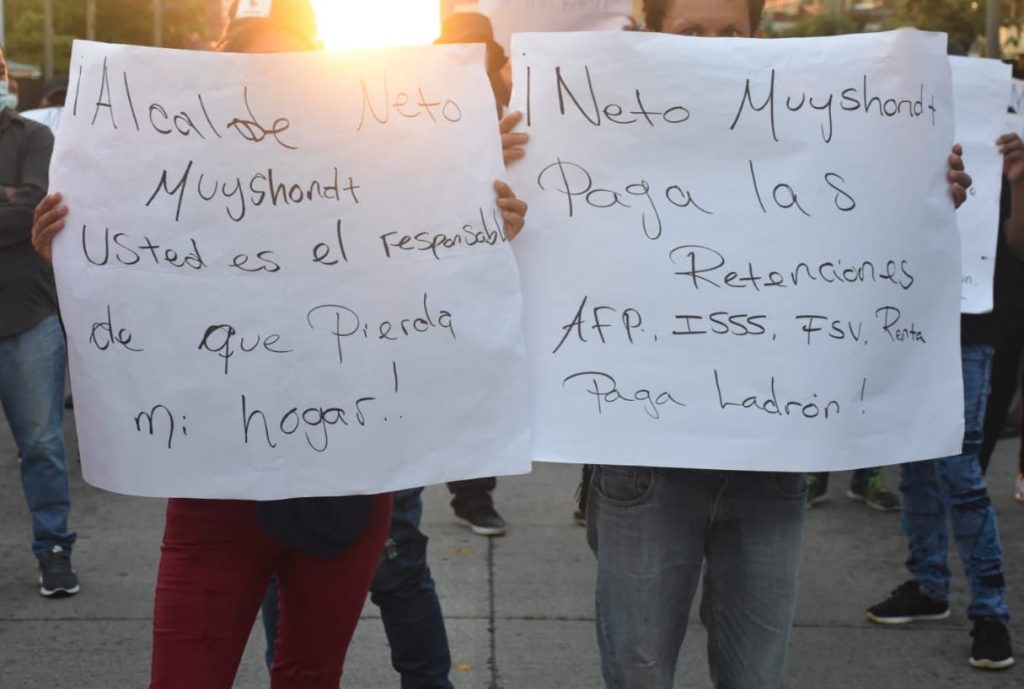 ¡Alcalde Neto
Muyshondt
Usted es el responsable
de que pierda
mi hogar.!
¡Neto Muyshondt
Paga las
Retenciones
AFP, ISSS, FSV, Renta
Paga Ladrón!